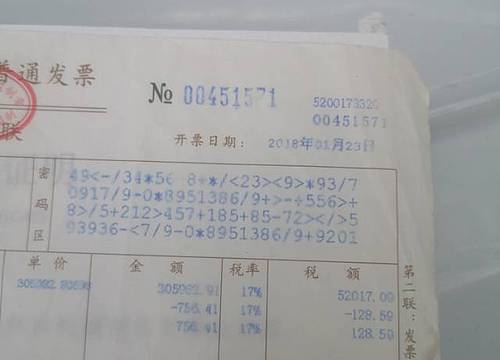 普通发票
№ 00451571
5200173320
00451571
联
开票日期: 2018年01月23日
密码区
49<-/34*56 8+*/<23><9>*93/7
0917/9-0*8951386/9+>-+556>+
8>/5+212>457+185+85-72></>5
93936-<7/9-0*8951386/9+9201
单价 金额 税率 税额
305982.91 17% 52017.09
-756.41 17% -128.59
756.41 17% 128.59
第二联:发票